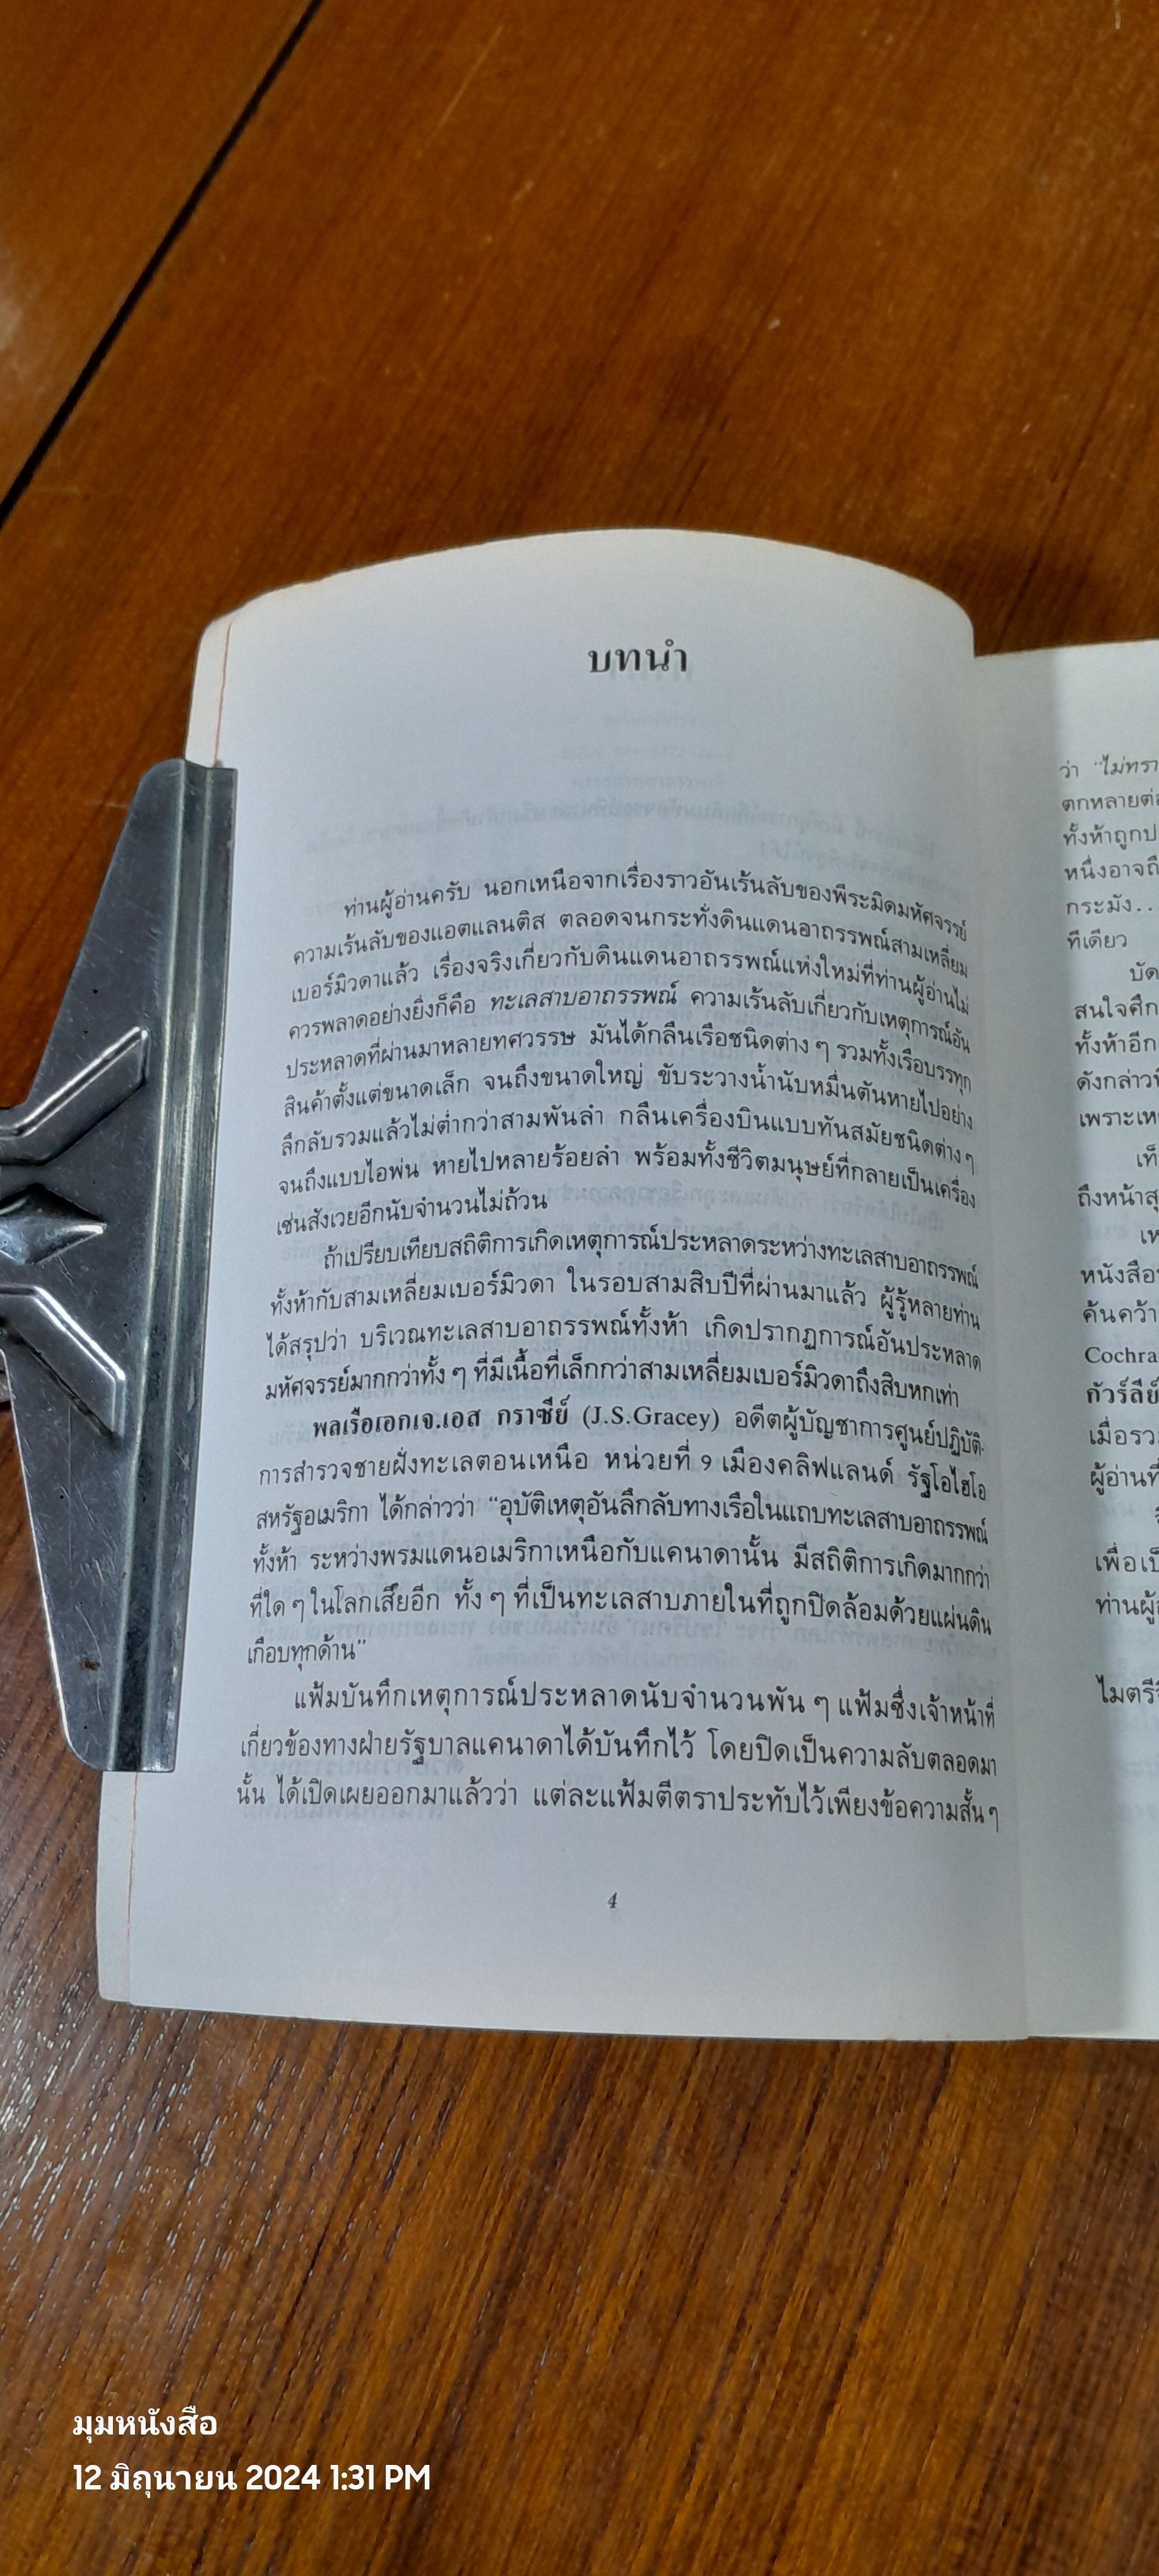 บทนำ
ท่านผู้อ่านครับ นอกเหนือจากเรื่องราวอันเร้นลับของพีระมิดมหัศจรรย์
ความเร้นลับของแอตแลนติส ตลอดจนกระทั่งดินแดนอาถรรพณ์สามเหลี่ยม
เบอร์มิวดาแล้ว เรื่องจริงเกี่ยวกับดินแดนอาถรรพณ์แห่งใหม่ที่ท่านผู้อ่านไม่
ควรพลาดอย่างยิ่งก็คือ ทะเลสาบอาถรรพณ์ ความเร้นลับเกี่ยวกับเหตุการณ์อัน
ประหลาดที่ผ่านมาหลายทศวรรษ มันได้กลืนเรือชนิดต่าง ๆ รวมทั้งเรือบรรทุก
สินค้าตั้งแต่ขนาดเล็ก จนถึงขนาดใหญ่ ขับระวางน้ำนับหมื่นตันหายไปอย่าง
ลึกลับรวมแล้วไม่ต่ำกว่าสามพันลำ กลืนเครื่องบินแบบทันสมัยชนิดต่าง ๆ
จนถึงแบบไอพ่น หายไปหลายร้อยลำ พร้อมทั้งชีวิตมนุษย์ที่กลายเป็นเครื่อง
เซ่นสังเวยอีกนับจำนวนไม่ถ้วน
ถ้าเปรียบเทียบสถิติการเกิดเหตุการณ์ประหลาดระหว่างทะเลสาบอาถรรพณ์
ทั้งห้ากับสามเหลี่ยมเบอร์มิวดา ในรอบสามสิบปีที่ผ่านมาแล้ว ผู้รู้หลายท่าน
ได้สรุปว่า บริเวณทะเลสาบอาถรรพณ์ทั้งห้า เกิดปรากฏการณ์อันประหลาด
มหัศจรรย์มากกว่าทั้ง ๆ ที่มีเนื้อที่เล็กกว่าสามเหลี่ยมเบอร์มิวดาถึงสิบหกเท่า
พลเรือเอกเจ.เอส กราซีย์ (J.S.Gracey) อดีตผู้บัญชาการศูนย์ปฏิบัติ-
การสำรวจชายฝั่งทะเลตอนเหนือ หน่วยที่ 9 เมืองคลิฟแลนด์ รัฐโอไฮโอ
สหรัฐอเมริกา ได้กล่าวว่า “อุบัติเหตุอันลึกลับทางเรือในแถบทะเลสาบอาถรรพณ์
ทั้งห้า ระหว่างพรมแดนอเมริกาเหนือกับแคนาดานั้น มีสถิติการเกิดมากกว่า
ที่ใด ๆ ในโลกเสียอีก ทั้ง ๆ ที่เป็นทะเลสาบภายในที่ถูกปิดล้อมด้วยแผ่นดิน
เกือบทุกด้าน”
แฟ้มบันทึกเหตุการณ์ประหลาดนับจำนวนพัน ๆ แฟ้มซึ่งเจ้าหน้าที่
เกี่ยวข้องทางฝ่ายรัฐบาลแคนาดาได้บันทึกไว้ โดยปิดเป็นความลับตลอดมา
นั้น ได้เปิดเผยออกมาแล้วว่า แต่ละแฟ้มตีตราประทับไว้เพียงข้อความสั้น ๆ
4
ว่า “ไม่ทรา
ตกหลายต่อ
ทั้งห้าถูกป
หนึ่งอาจถื
กระมัง..
ทีเดียว
บัด
สนใจศึก
ทั้งห้าอีก
ดังกล่าว
เพราะเห
เท็
ถึงหน้าสุ
เห
หนังสือ
ค้นคว้า
Cochra
กัวร์ลีย์
เมื่อรว
ผู้อ่านที่
เพื่อเป็
ท่านผู้
ไมตรีจิ
มุมหนังสือ
12 มิถุนายน 2024 1:31 PM